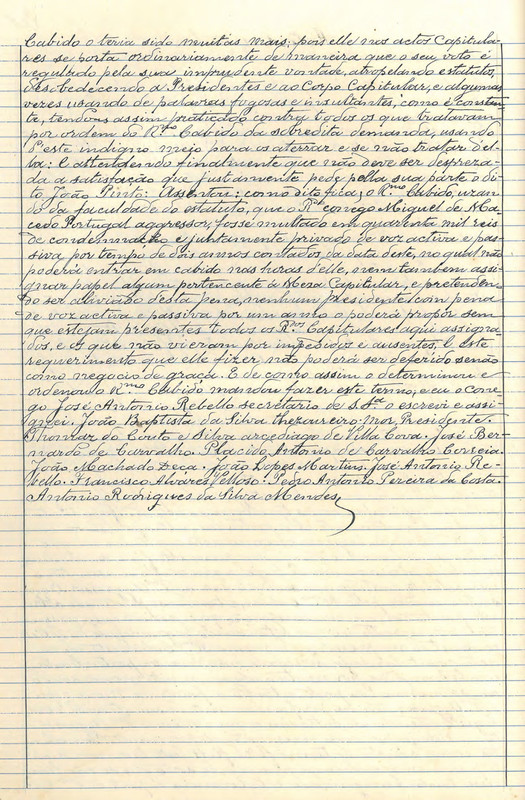 Cabido o teria sido muitas mais; pois elle nos actos Capitula-
res se porta ordinariamente de maneira que o seu voto é
regulado pela sua imprudente vontade, atropelando estatutos,
desobedecendo a Presidentes e ao Corpo Capitular, e algumas
vezes usando de palavras fogosas e insultantes, como é constan-
te, tendo-as assim praticado contra todos os que tratavam
por ordem do R.mo Cabido da sobredita demanda, usando
d'este indigno meio para os aterrar e se não tratar del-
la: E attendendo finalmente que não deve ser despreza-
da a satisfação que justamente pede pella sua parte o di-
to João Pinto: Assentou; como dito fica; o R.mo Cabido, uzan-
do da faculdade do estatuto, que o R.do conego Miguel de Ma-
cedo Portugal aggressor, fosse multado em quarenta mil reis
de condemnação e juntamente privado de voz activa e pas-
siva, por tempo de dois annos contados da data deste, no qual não
poderá entrar em cabido nas horas d'elle, nem tambem assi-
gnar papel algum pertencente á Meza Capitular, e pretenden-
do ser aliviado desta pena, nenhum presidente com pena
de voz activa e passiva por um anno o poderá propôr sem
que estejam presentes todos os R.dos Capitulares aqui assigna-
dos, e os que não vieram por impedidos e ausentes, E este
requerimento que elle fizer não poderá ser deferido senão
como negocio de graça. E de como assim o determinou e
ordenou o R.mo Cabido mandou fazer este termo, e eu o Cone-
go José Antonio Rebello secretario de S. S.a o escrevi e assi-
gnei. João Baptista da Silva Thezoureiro-Mor, Presidente.
Thomaz do Couto e Silva arcediago de Villa Cova. José Ber-
nardo de Carvalho. Placido Antonio de Carvalho Correia.
João Machado Deça. João Lopes Martins. José Antonio Re-
bello. Francisco Alvares Velloso. Pedro Antonio Pereira da Costa.
Antonio Rodrigues da Silva Mendes